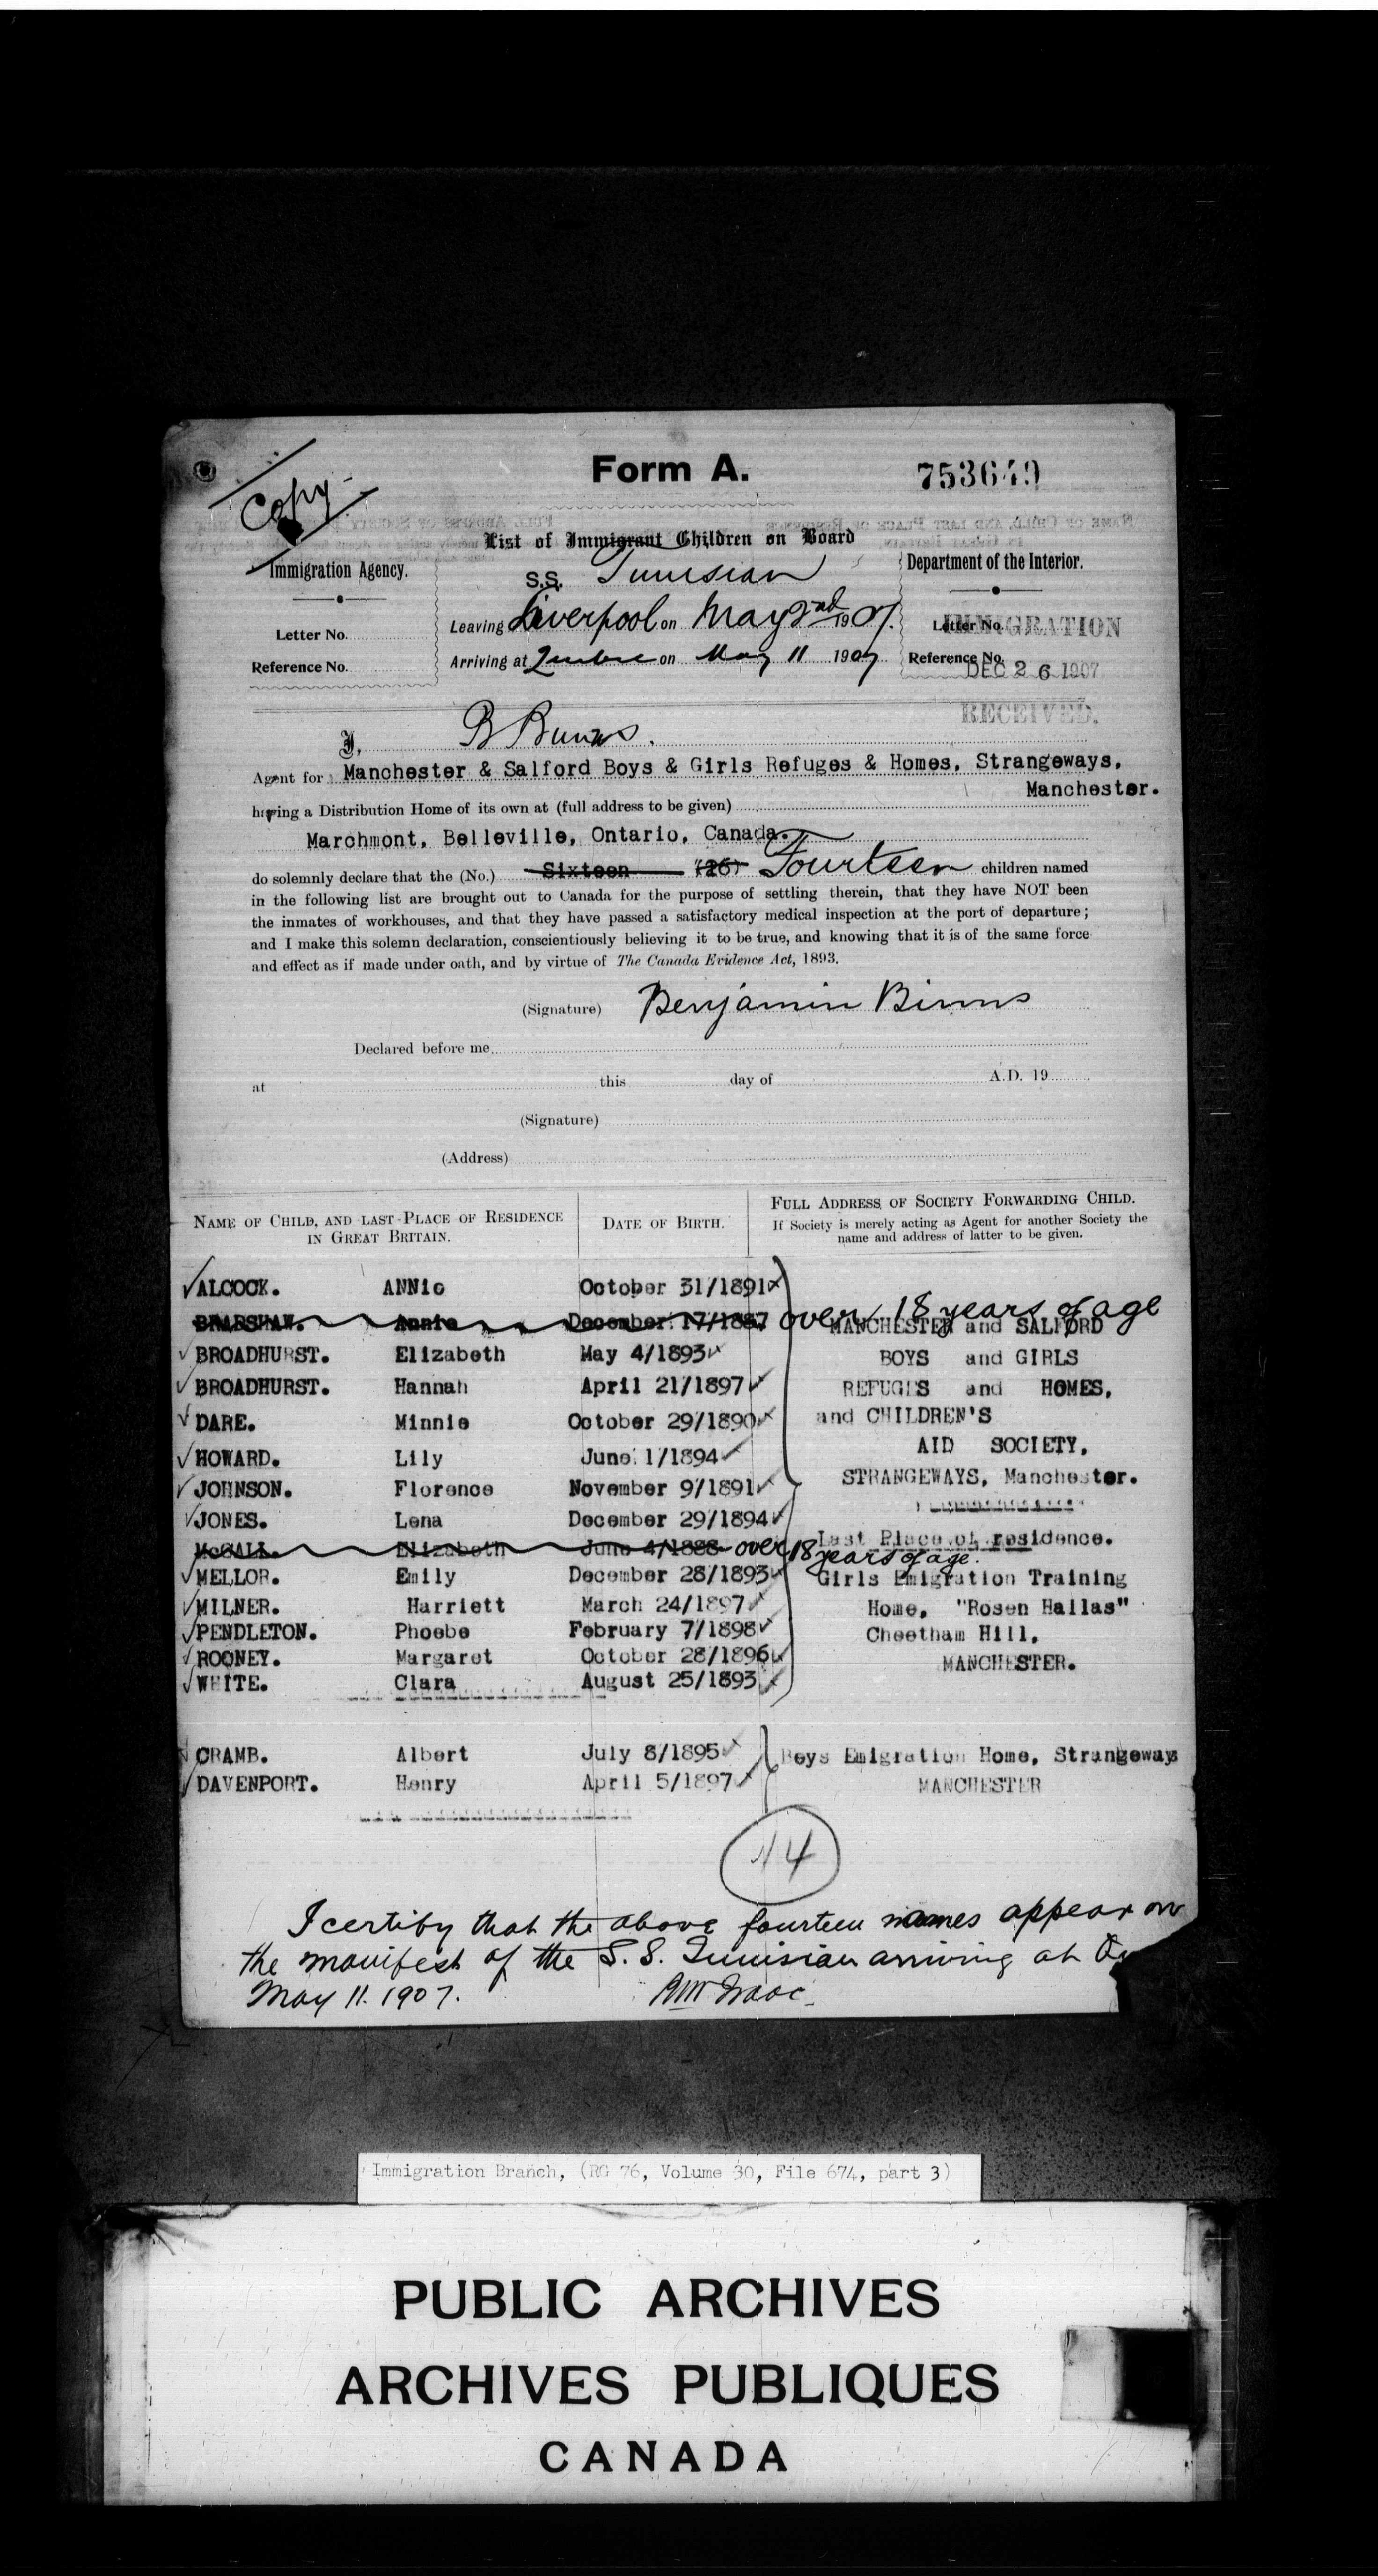 Copy
Form A.
753649
List of Immigrant Children on Board
Immigration Agency.
S.S. Tunisian
Department of the Interior.
Letter No.
Leaving Liverpool on May 2nd 1907.
Letter No.
IMMIGRATION
Reference No.
Arriving at Quebec on May 11 1907
Reference No.
DEC 26 1907
RECEIVED.
I, B Binns.
Agent for Manchester & Salford Boys & Girls Refuges & Homes, Strangeways,
Manchester.
having a Distribution Home of its own at (full address to be given)
Marchmont, Belleville, Ontario, Canada.
do solemnly declare that the (No.) Sixteen (16) Fourteen children named
in the following list are brought out to Canada for the purpose of settling therein, that they have NOT been
the inmates of workhouses, and that they have passed a satisfactory medical inspection at the port of departure;
and I make this solemn declaration, conscientiously believing it to be true, and knowing that it is of the same force
and effect as if made under oath, and by virtue of The Canada Evidence Act, 1893.
(Signature) Benjamin Binns
Declared before me
at this day of A.D. 19
(Signature)
(Address)
NAME OF CHILD, AND LAST PLACE OF RESIDENCE
IN GREAT BRITAIN.
DATE OF BIRTH.
FULL ADDRESS OF SOCIETY FORWARDING CHILD.
If Society is merely acting as Agent for another Society the
name and address of latter to be given.
ALCOCK. ANNie October 31/1891
BRADSHAW. Annie December 17/1887 over 18 years of age
MANCHESTER and SALFORD
BROADHURST. Elizabeth May 4/1893 BOYS and GIRLS
BROADHURST. Hannah April 21/1897 REFUGES and HOMES,
DARE. Minnie October 29/1890 and CHILDREN'S
HOWARD. Lily June 1/1894 AID SOCIETY,
JOHNSON. Florence November 9/1891 STRANGEWAYS, Manchester.
JONES. Lena December 29/1894
Last Place of residence.
McCALL. Elizabeth June 4/1888 over 18 years of age.
MELLOR. Emily December 28/1893 Girls Emigration Training
MILNER. Harriett March 24/1897 Home, "Rosen Hallas"
PENDLETON. Phoebe February 7/1898 Cheetham Hill,
ROONEY. Margaret October 28/1896 MANCHESTER.
WHITE. Clara August 25/1893
CRAMB. Albert July 8/1895 Boys Emigration Home, Strangeways
DAVENPORT. Henry April 5/1897 MANCHESTER
14
I certify that the above fourteen names appear on
the manifest of the S.S. Tunisian arriving at
May 11. 1907.
Immigration Branch, (RG 76, Volume 30, File 674, part 3)
PUBLIC ARCHIVES
ARCHIVES PUBLIQUES
CANADA